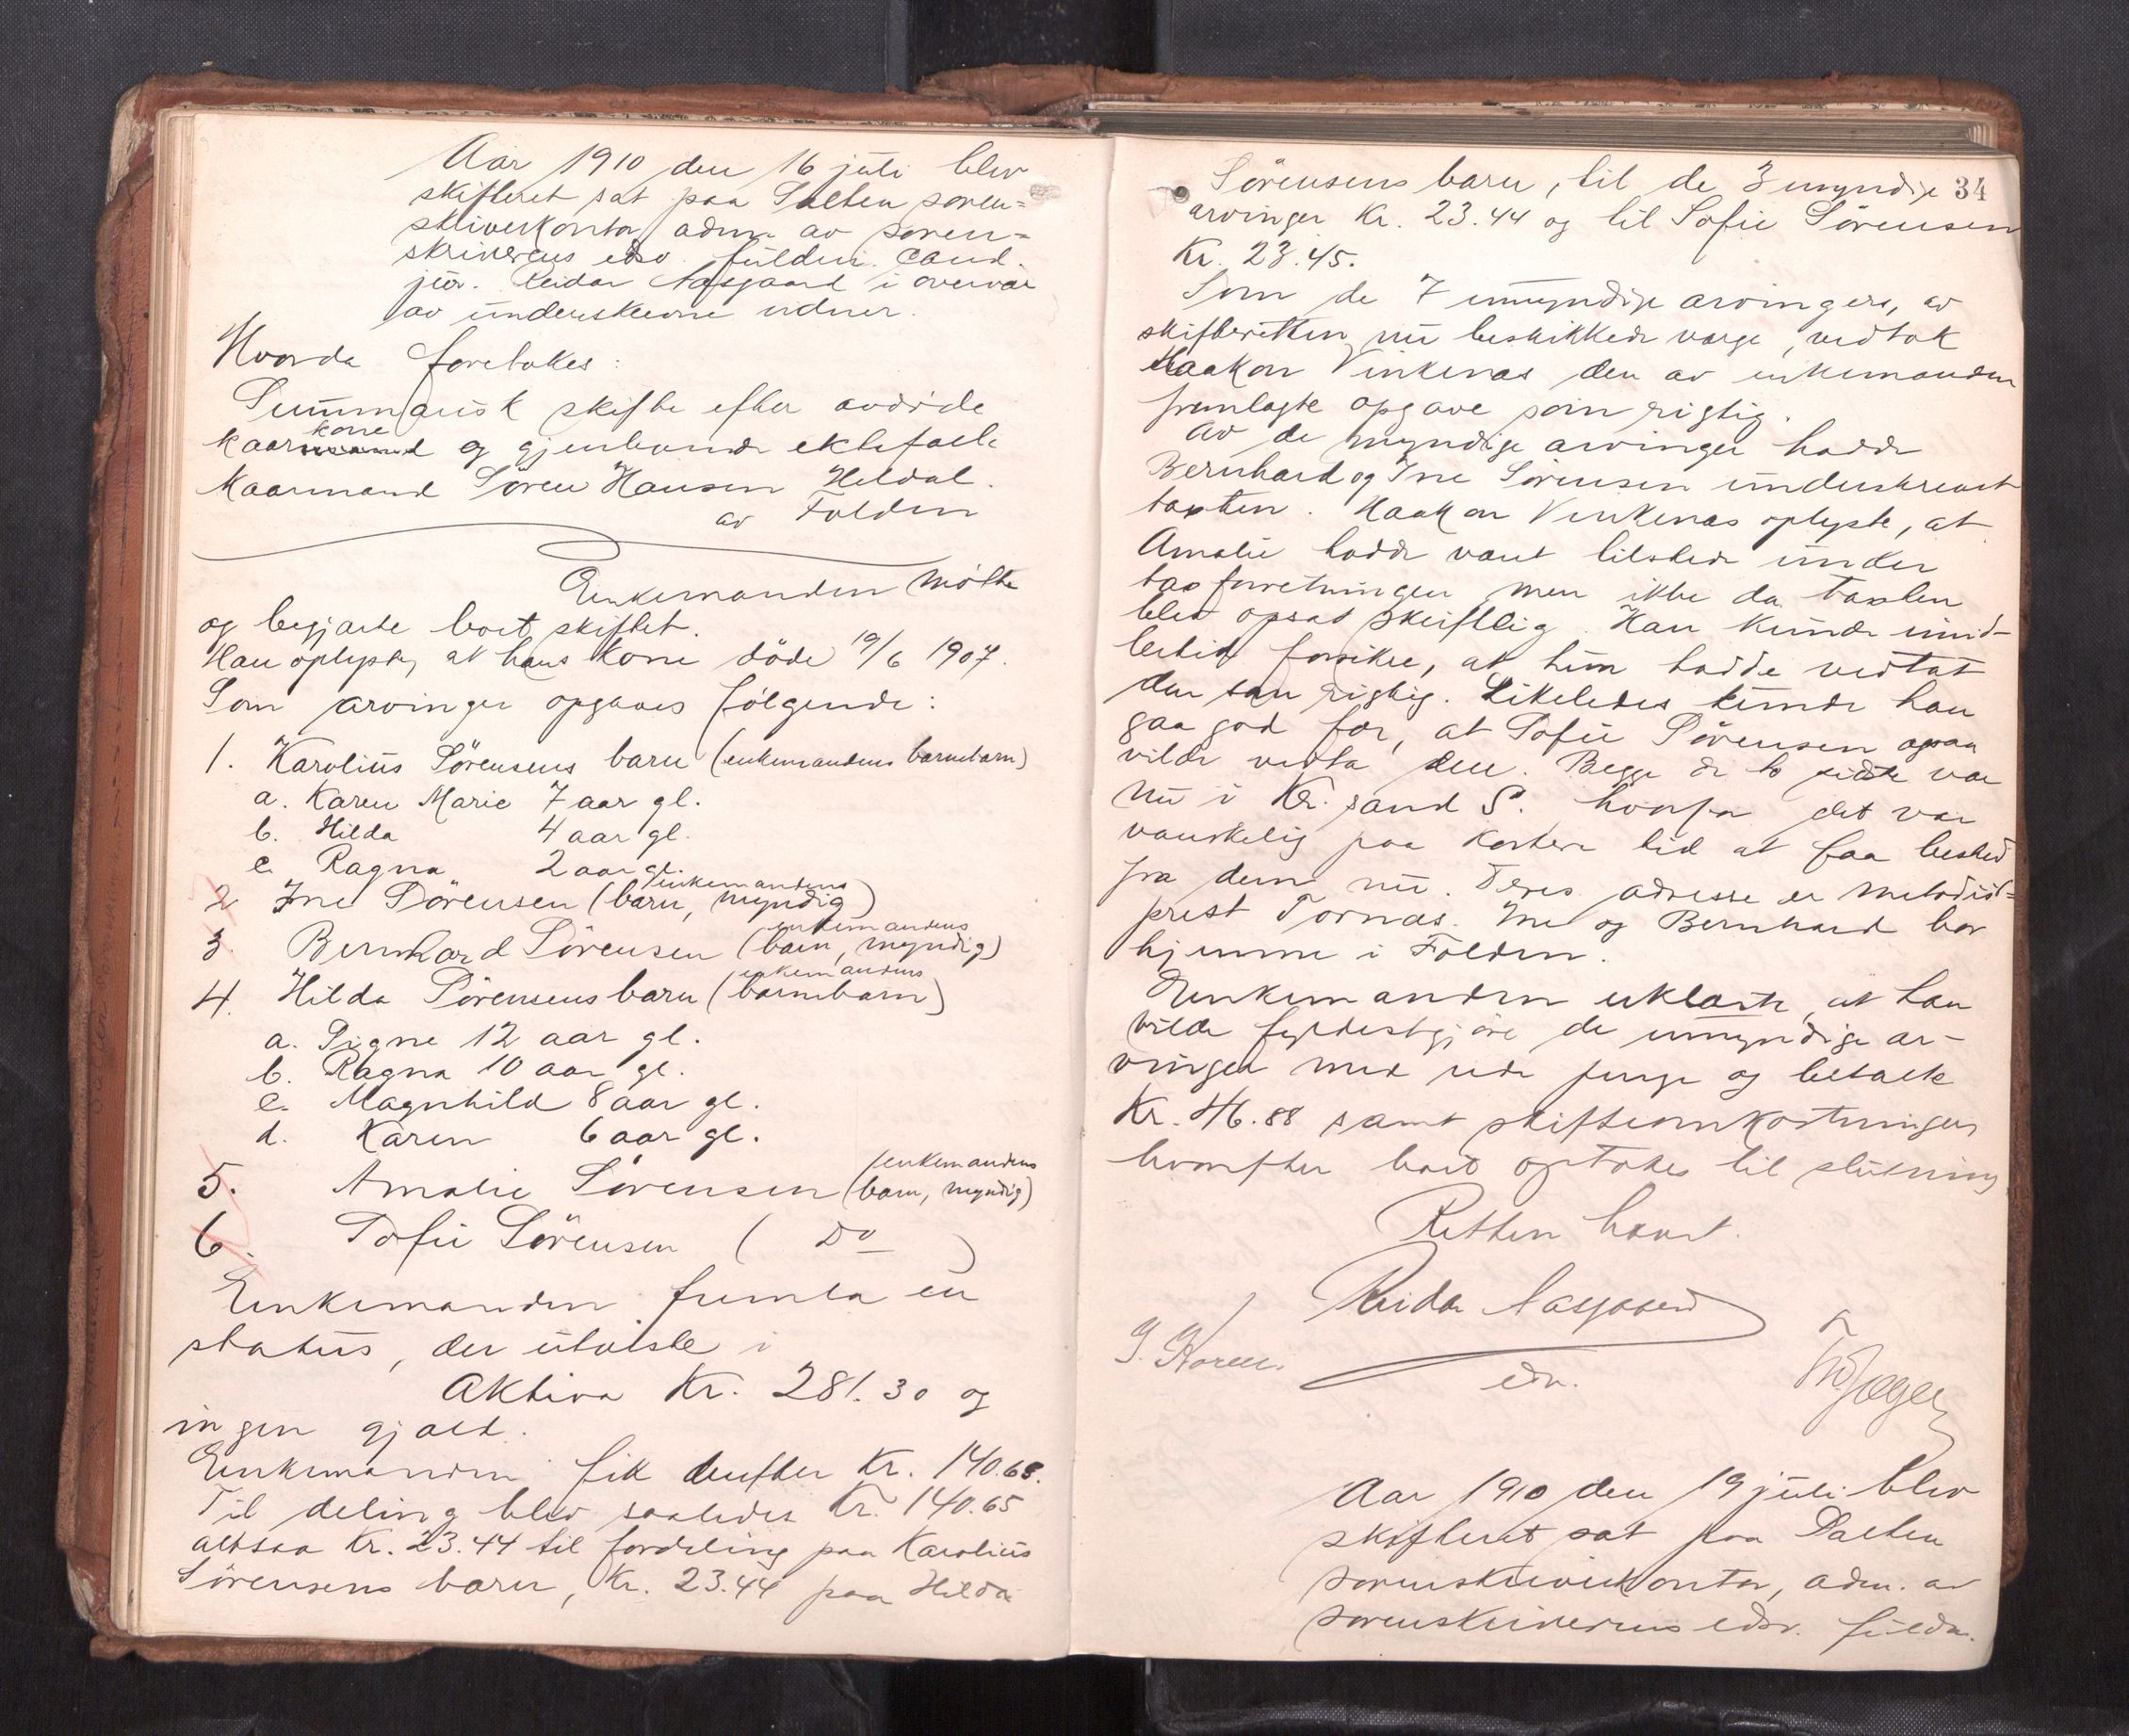 Aar 1910 den 16 juli blev
skifteret sat paa Salten soren=
skriverkontor adm. av soren=
skriverens edsv. fuldm. cand.
jur. Reidar Aasgaard i overvær
av underskrevne vidner.
Hvorda foretokes:
Summarisk skifte efter avdøde
kaarkone og gjenlevende ektefælle
Kaarmand Sören Hansen Heldal
av Folden
Enkemanden mötte
og begjærte boet skiftet.
Han oplyste, at hans kone döde 19/6 1907.
Som arvinger opgaves fölgende:
1. Karolius Sörensens barn (enkemandens barnebarn)
a. Karen Marie 7 aar gl.
b. Hilda 4 aar gl.
c. Ragna 2 aar gl.
2 Ine Sörensen (enkemandens barn, myndig)
3. Bernhard Sörensen (enkemandens barn, myndig)
4. Hilda Sörensens barn (enkemandens barnebarn)
a. Signe 12 aar gl.
b. Ragna 10 aar gl.
c. Magnhild 8 aar gl.
d. Karen 6 aar gl.
5. Amalie Sörensen (enkemandens barn, myndig)
6. Sofie Sörensen ( Do )
Enkemanden fremla en
status, der utviste i
Aktiva Kr. 281.30 og
ingen gjæld.
Enkemanden fik derefter Kr. 140.65.
Til deling blev saaledes Kr. 140.65
altsaa Kr. 23.44 til fordeling paa Karolius
Sörensens barn, Kr. 23.44 paa Hilda
34
Sörensens barn, til de 3 myndige
arvinger Kr. 23.44 og til Sofie Sörensen
Kr. 23.45.
Som de 7 umyndige arvingers, av
skifteretten nu beskikkede værge, vedtok
Haakon Vinkenes den av enkemanden
fremlagte opgave som rigtig.
Av de myndige arvinger hadde
Bernhard og Ine Sörensen underskrevet
taxten. Haakon Vinkenes oplyste, at
Amalie hadde været tilstede under
taxforretningen men ikke da taxten
blev opsat skriftlig. Han kunde imid-
lertid forsikre, at hun hadde vedtat
den som rigtig. Likeledes kunde han
gaa god for, at Sofie Sörensen ogsaa
vilde vedta den. Begge de to sidste var
nu i Kr.sand S. hvorfor det var
vanskelig paa kortere tid at faa besked
fra dem nu. Deres adresse er metodist=
prest Tornæs. Ine og Bernhard bor
hjemme i Folden.
Enkemanden erklærte, at han
vilde fyldestgjöre de umyndige ar-
vinger med rede penge og betalte
Kr. 46.88 samt skifteomkostninger
hvorefter boet optokes til slutning
Retten hævet.
Reidar Aasgaard
edv.
Aar 1910 den 19 juli blev
skifteret sat paa Salten
sorenskriverkontor, adm. av
sorenskriverens edsv. fuldm.